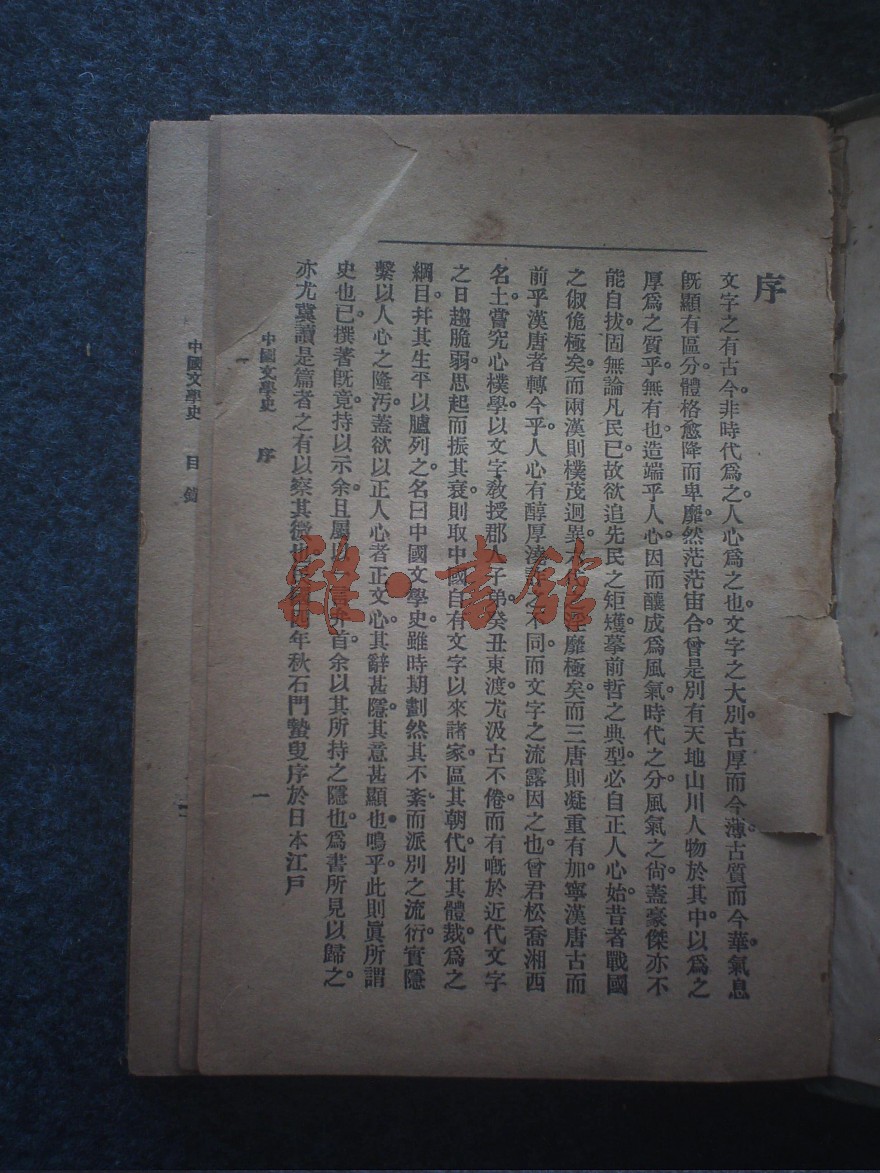 序
文字之有古今。非時代爲之。人心爲之也。文字之大別。古厚而今薄。古質而今華。氣息
旣顯有區分。體格愈降而卑靡。然茫茫宙合。曾是別有天地山川人物於其中。以爲之
厚爲之質乎。無有也。造端乎人心。因而釀成爲風氣。時代之分。風氣之尙。蓋豪傑亦不
能自拔。固無論凡民已。故欲追先民之矩矱。摹前哲之典型。必自正人心始。昔者戰國
之俶佹極矣。而兩漢則樸茂迥異。六代之淫靡極矣。而三唐則凝重有加。寧漢唐古而
前乎漢唐者轉今乎。人心有醇厚澆之不同。而文字之流露因之也。曾君松喬湘西
名士。嘗究心樸學。以文字敎授郡人子弟。癸丑東渡。尤汲古不倦。而有嘅於近代文字
之日趨脆弱。思起而振其衰。則取中國自有文字以來諸家。區其朝代。別其體裁。爲之
綱目。幷其生平以臚列之。名曰中國文學史。雖時期劃然其不紊。而派別之流衍。實隱
繫以人心之隆汚。蓋欲以正人心者正文心。其辭甚隱。其意甚顯也。嗚乎。此則眞所謂
史也已。撰著旣竟。持以示余。且屬以一言弁首。余以其所持之隱也。爲書所見以歸之。
亦尤冀讀是篇者之有以察其微也。年秋石門蟄叟序於日本江戶
中國文學史 序
一
一
中國文學史 目錄
一
雜·書館